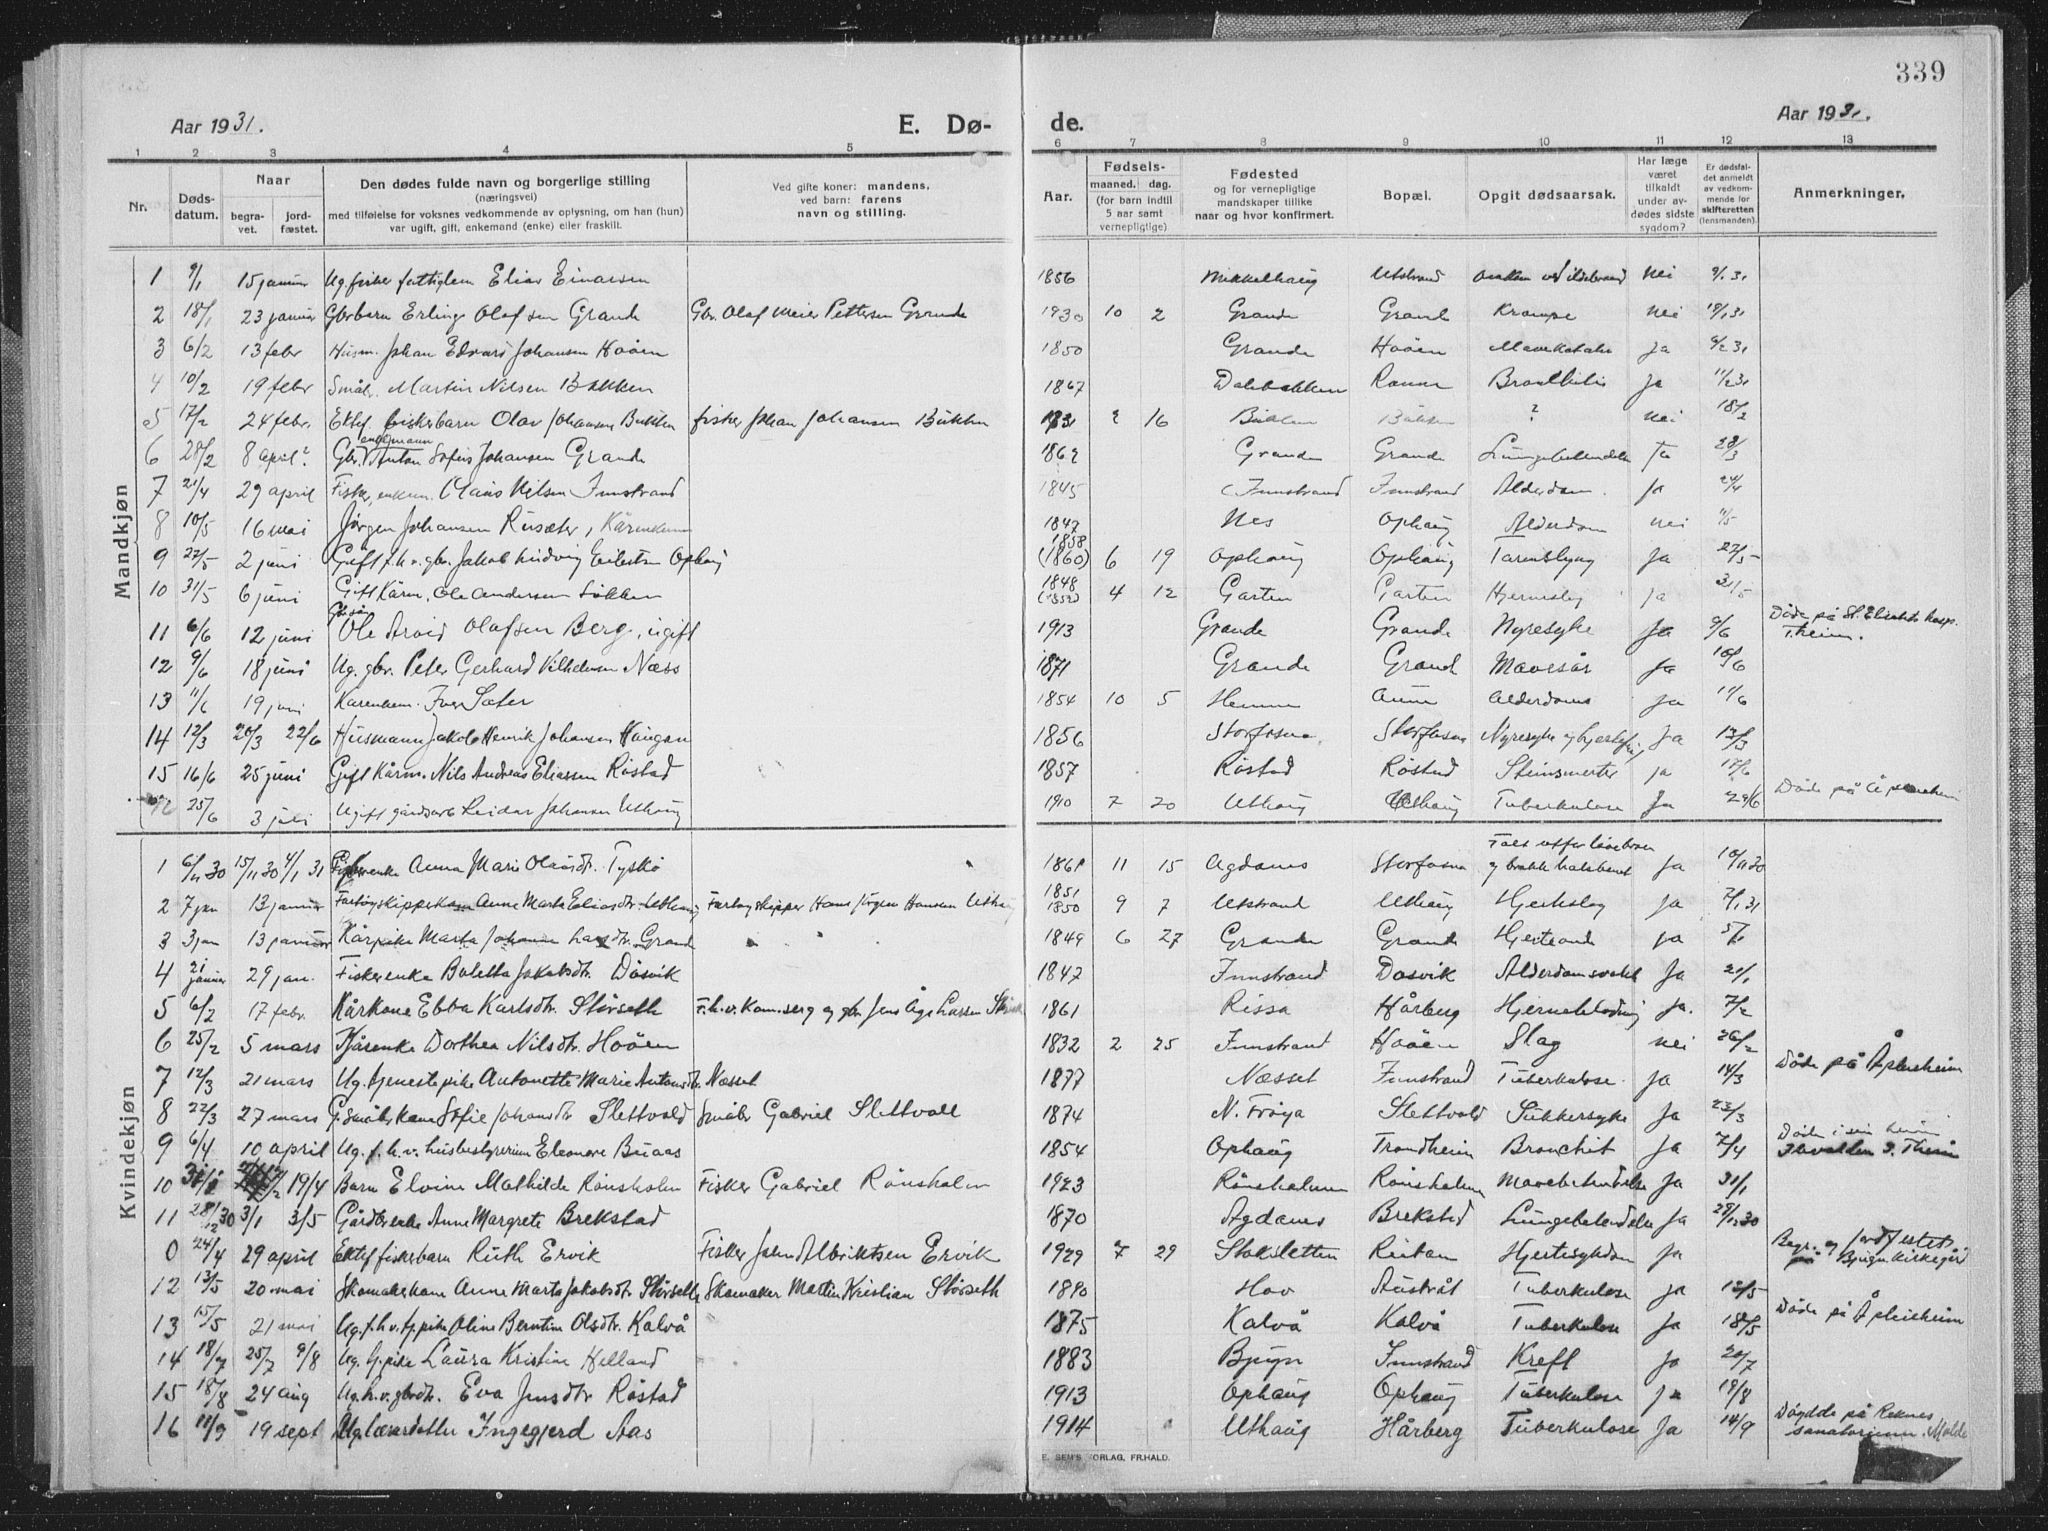 339
Aar 1931.
E. Dø-
de.
Aar 1931.
1 2 3 4 5 6 7 8 9 10 11 12 13
Nr.
Døds-datum.
Naar
begra-vet.
jord-fæstet.
Den dødes fulde navn og borgerlige stilling
(næringsvei)
med tilføielse for voksnes vedkommende av oplysning, om han (hun)
var ugift, gift, enkemand (enke) eller fraskilt.
Ved gifte koner: mandens,
ved barn: farens
navn og stilling.
Aar.
Fødsels-
maaned. dag.
(for barn indtil
5 aar samt
vernepligtige)
Fødested
og for vernepligtige
mandskaper tillike
naar og hvor konfirmert.
Bopæl.
Opgit dødsaarsak.
Har læge
været
tilkaldt
under av-
dødes sidste
sygdom?
Er dødsfal-
det anmeldt
av vedkom-
mende for
skifteretten
(lensmanden).
Anmerkninger.
Mandkjøn
1 9/1 15 januar Ug. fisker fattiglem Elias Einarsen 1856 Mikkelhaug Utstrand nei 9/1 31
2 18/1 23 januar Gbr barn Erling Olafsen Grande Gbr. Olaf Meier Pettersen Grande 1930 10 2 Grande Grande Krampe nei 19/1 31
3 6/2 13 febr Husm. Johan Edvard Johansen Hoøen 1850 Grande Hoøen Mavekatahr ja 9/2 31
4 10/2 19 febr Småbr. Martin Nilsen Bakken 1867 Dalebakken Ja 11/2 31
5 17/2 24 febr. Ektef. fiskerbarn Olav Johansen Bukken fisker Johan Johansen Bukken 16 Bukken Bukken ? nei 18/2
6 28/2 8 april? Gbr. enkemann Anton Sofus Johansen Grande Grande Grande Lungebetendelse Ja 28/3
7 21/4 29 april Fisker, enkem. Claus Nilsen Innstrand 1845 Innstrand Innstrand Alderdom. Ja 24/4
8 10/5 16 mai Jørgen Johansen Rusæter, Kårenkem 1847 Nes Ophaug Alderdom nei 11/5
9 27/5 2 juni Gift f.h.v. gbr. Jakob Ludvig Ophaug 1858 (1860) 6 19 Ophaug Ophaug Tarmslyng Ja 27/5
10 31/5 6 juni Gift Kårm. Ole Andersen 1848 4 12 Garten Garten Hjerneslag ja 31/5
11 6/6 12 juni Gbr. sønn Ole Arvid Olafsen Berg, ugift 1913 Grande Grande Nyresyke Ja 9/6 Døde på St. Elisabeths hosp. Theim.
12 9/6 18 juni Ug. gbr. Peter Gerhard Vilhelmsen Næss 1871 Grande Grande Mavesår Ja 10/6
13 11/6 19 juni Kårenkem. Iver Sæter 1854 10 5 Hemne Aune Alderdoms ja 11/6
14 12/3 20/3 22/6 Husmann Jakob Henrik Johansen Haugan 1856 Storfosna Storfosna Nyresyke og hjertefeil Ja 13/3
15 16/6 25 juni Gift Kårm. Nils Andreas Eliassen Røstad 1857 Røstad Røstad Steinsmerter ja 17/6
25/6 3 juli Ugift gårdsarb. Reidar Johansen Uthaug 1910 7 20 Uthaug Uthaug Tuberkulose Ja 29/6 Døde på Åpleisheim
Kvindekjøn
1 6/11 30 15/11 30 4/1 31 enke Anna Marie Olausdtr. Tyskø 1861 11 15 Agdanes Storfosna Falt utfor låvebroen og brakk halsbenet Ja 10/11 30
2 7 jan 13 januar Fartøyskipperkone Anne Marta Eliasdtr. Uthaug Fartøyskipper Hans Jørgen Hansen Uthaug 1851 1850 9 7 Utstrand Uthaug Hjerteslag Ja 7/1 31
3 3 jan 13 januar Kårpike Marta Johanna Larsdtr. Grande 1849 6 27 Grande Grande ja 5/1
4 21 januar 29 jan. Fiskerenke Boletta Jakobsdtr. Døsvik 1847 Innstrand Døsvik Alderdomssvakh. Ja 21/1
5 6/2 17 febr. Kårkone Ebba Karlsdtr. Størseth F.h.v. Kom.serg og gbr. Jens Åge Larsen Størseth 1861 Rissa Hårberg Hjerneblødning Ja. 7/2
6 25/2 5 mars Kårenke Dorthea Nilsdtr. Hoøen 1832 2 25 Innstrand Hoøen Slag nei 26/2
7 12/3 21 mars Ug. tjenestepike Antonette Marie Antonsdtr. Næsset 1877 Næsset Innstrand Tuberkulose. Ja 14/3 Døde på Åpleisheim
8 22/3 27 mars G. Småbr.kone Sofie Johansdtr Slettvold Småbr Gabriel Slettvold 1874 N. Frøya Slettvold Sukkersyke Ja 23/3
9 6/4 10 april Ug. f.h.v. husbestyrerin Eleonore Buaas 1854 Ophaug Trondheim Bronchit Ja 7/4 Døde i sin heim Theim
10 31/1 19/4 Barn Elvine Mathilde Rønsholm Fisker Gabriel Rønsholm 1923 Rønsholmen Rønsholmen Ja 31/1
11 28/12 30 3/1 3/5 Gårdbr.enke Anne Margrete Brekstad 1870 Agdanes Brekstad Lungebetendelse Ja 29/12 30
0 24/4 29 april Ektef fiskerbarn Ruth Ervik Fisker John Albriktsen Ervik 1929 7 29 Stoksletten Reitan Hjertesykdom Ja Begr. og jordfestet på Bjugn kirkegård
12 13/5 20 mai Skomakerkone Anne Marta Jakobsdtr Størseth Skomaker Martin Kristian Størseth 1890 Hov Austråt Tuberkulose ja 18/5
13 15/5 21 mai Ug. f.h.v. tj.pike Oline Berntine Olsdtr. Kalvå 1875 Kalvå Kalvå Tuberkulose Ja 18/5 Døde på Åpleisheim
14 18/7 25/7 9/8 Ug. tj. pike Laura Kristine Helland 1883 Bjugn Innstrand Kreft Ja 20/7
15 18/8 24 aug Ug. h.v. gbrdtr. Eva Jensdtr Røstad 1913 Ophaug Ophaug Tuberkulose Ja 19/8
16 11/9 19 sept Ug lærerdatter Ingegjerd Aas 1914 Uthaug Hårberg Tuberkulose Ja 14/9 Døgdde på Reknes sanatorium. Molde
E. SEM'S FORLAG, FR.HALD.